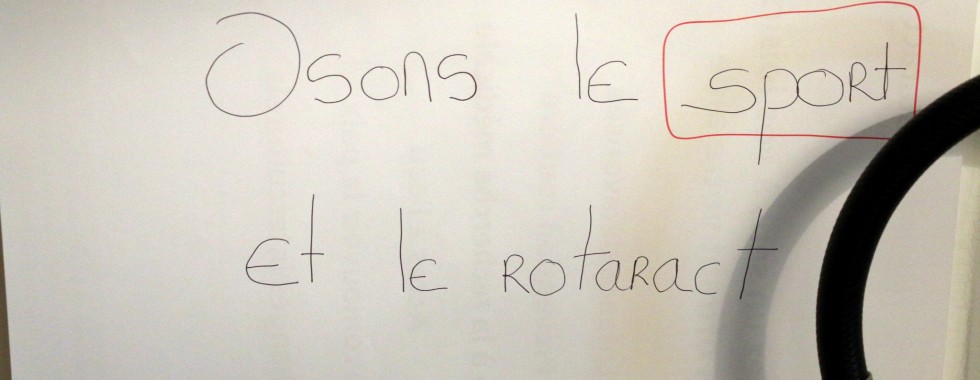 Osons le sport
Et le rotaract